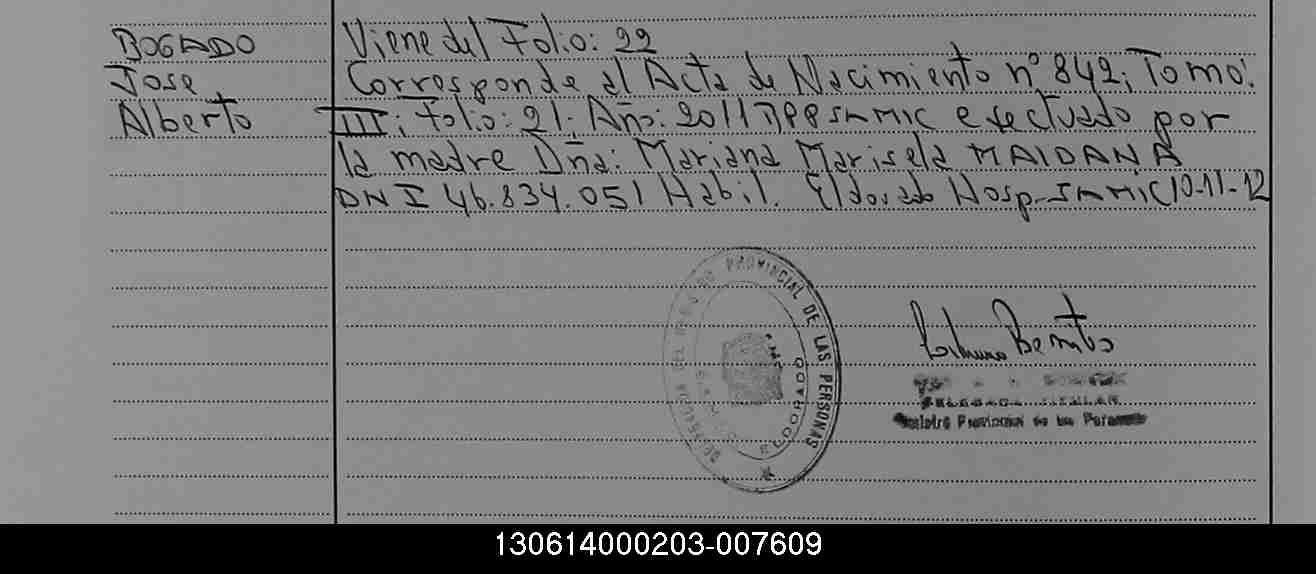 BOGADO
Jose
Alberto
Viene del Folio: 22
Corresponde al Acta de Nacimiento n° 842; Tomo:
III; Folio: 21; Año: 2011 efectuado por
la madre Dña: Mariana Marisela MAIDANA
DNI 46.834.051 Habil. Eldorado Hosp. SAMIC 10-11-12
PROVINCIAL DE LAS PERSONAS
ELDORADO
Benitez
Registro Provincial de las Personas
130614000203-007609